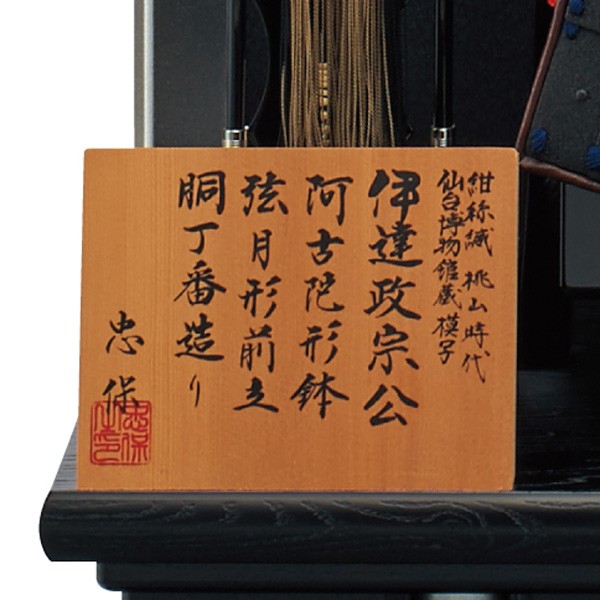 紺糸縅 桃山時代
仙台博物館蔵 模写
伊達政宗公
阿古陀形鉢
弦月形前立
胴丁番造り
忠保